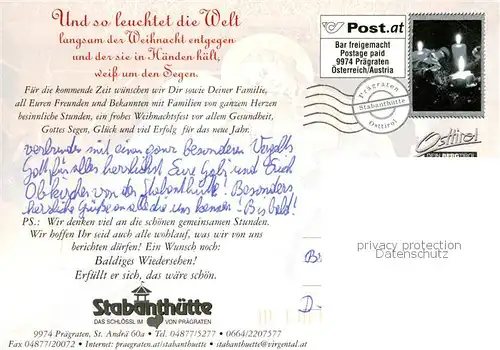 Und so leuchtet die Welt
langsam der Weihnacht entgegen
und der sie in Händen hält,
weiß um den Segen.
Für die kommende Zeit wünschen wir Dir sowie Deiner Familie,
all Euren Freunden und Bekannten mit Familien von ganzem Herzen
besinnliche Stunden, ein frohes Weihnachtsfest vor allem Gesundheit,
Gottes Segen, Glück und viel Erfolg für das neue Jahr.
verbunden mit einem ganz besonderen Vergelts
Gott für alles herzlichst Eure Gabi und Erich
Obkircher von der Stabanthütte! Besonders
herzliche Grüße an alle die uns kennen! Bis bald!
PS.: Wir denken viel an die schönen gemeinsamen Stunden.
Wir hoffen Ihr seid auch alle wohlauf, was wir von uns
berichten dürfen! Ein Wunsch noch:
Baldiges Wiedersehen!
Erfüllt er sich, das wäre schön.
Stabanthütte
DAS SCHLÖSSL IM VON PRÄGRATEN
9974 Prägraten, St. Andrä 60a • Tel. 04877/5277 • 0664/2207577
Fax 04877/20072 • Internet: praegraten.at/stabanthuette • stabanthuette@virgental.at
Post.at
Bar freigemacht
Postage paid
9974 Prägraten
Österreich/Austria
Prägraten
Stabanthütte
Osttirol
Osttirol
privacy protection
Datenschutz
D-